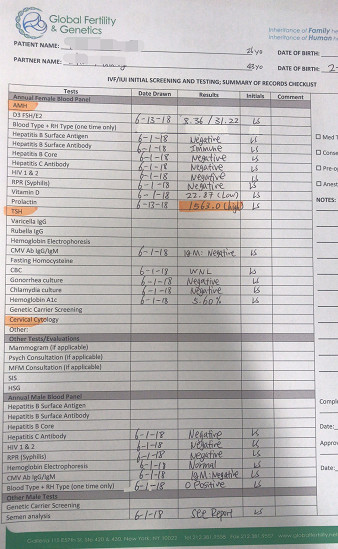 Global Fertility
& Genetics
Inheritance of Family
Inheritance of Human
PATIENT NAME:
yo DATE OF BIRTH:
PARTNER NAME:
43yo DATE OF BIRTH: 2-
IVF/IUI INITIAL SCREENING AND TESTING; SUMMARY OF RECORDS CHECKLIST
Tests Date Drawn Results Initials Comment
Annual Female Blood Panel
AMH
D3 FSH/E2 6-13-18 8.36 / 31.22 LS
Blood Type + RH Type (one time only)
Hepatitis B Surface Antigen 6-1-18 Negative LS
Hepatitis B Surface Antibody 6-1-18 Immune LS
Hepatitis B Core 6-1-18 Negative LS
Hepatitis C Antibody 6-1-18 Negative LS
HIV 1 & 2 6-1-18 Negative LS
RPR (Syphilis) 6-1-18 Negative LS
Vitamin D 6-1-18 22.87 (Low) LS
Prolactin 6-13-18 1563.0 (high) LS
TSH
Varicella IgG
Rubella IgG
Hemoglobin Electrophoresis
CMV Ab IgG/IgM 6-1-18 IgM: Negative LS
Fasting Homocysteine
CBC 6-1-18 WNL LS
Gonorrhea culture 6-1-18 Negative LS
Chlamydia culture 6-1-18 Negative LS
Hemoglobin A1c 6-1-18 5.60% LS
Genetic Carrier Screening
Cervical Cytology
Other:
Other Tests/Evaluations
Mammogram (if applicable)
Psych Consultation (if applicable)
MFM Consultation (if applicable)
SIS
HSG
Annual Male Blood Panel
Hepatitis B Surface Antigen
Hepatitis B Surface Antibody
Hepatitis B Core
Hepatitis C Antibody 6-1-18 Negative LS
HIV 1 & 2 6-1-18 Negative LS
RPR (Syphilis) 6-1-18 Negative LS
Hemoglobin Electrophoresis 6-1-18 Normal LS
CMV Ab IgG/IgM 6-1-18 IgM: Negative LS
Blood Type + RH Type (one time only) 6-1-18 O Positive LS
Other Male Tests
Genetic Carrier Screening
Semen analysis 6-1-18 See Report LS
Med
Conse
Pre-o
Anest
NOTES:
Compl
Date:
Appro
Date:
New York, NY 10022